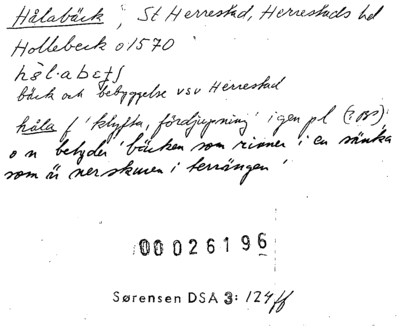 Hålabäck, St Herrestad, Herrestads hd
Hollebeck o 1570
bäck och bebyggelse vsv Herrestad
håla f 'klyfta, fördjupning' i gen pl (?obs),
o n betyder 'bäcken som rinner i en sänka
som är nerskuren i terrängen'
00026196
Sørensen DSA 3: 124 ff